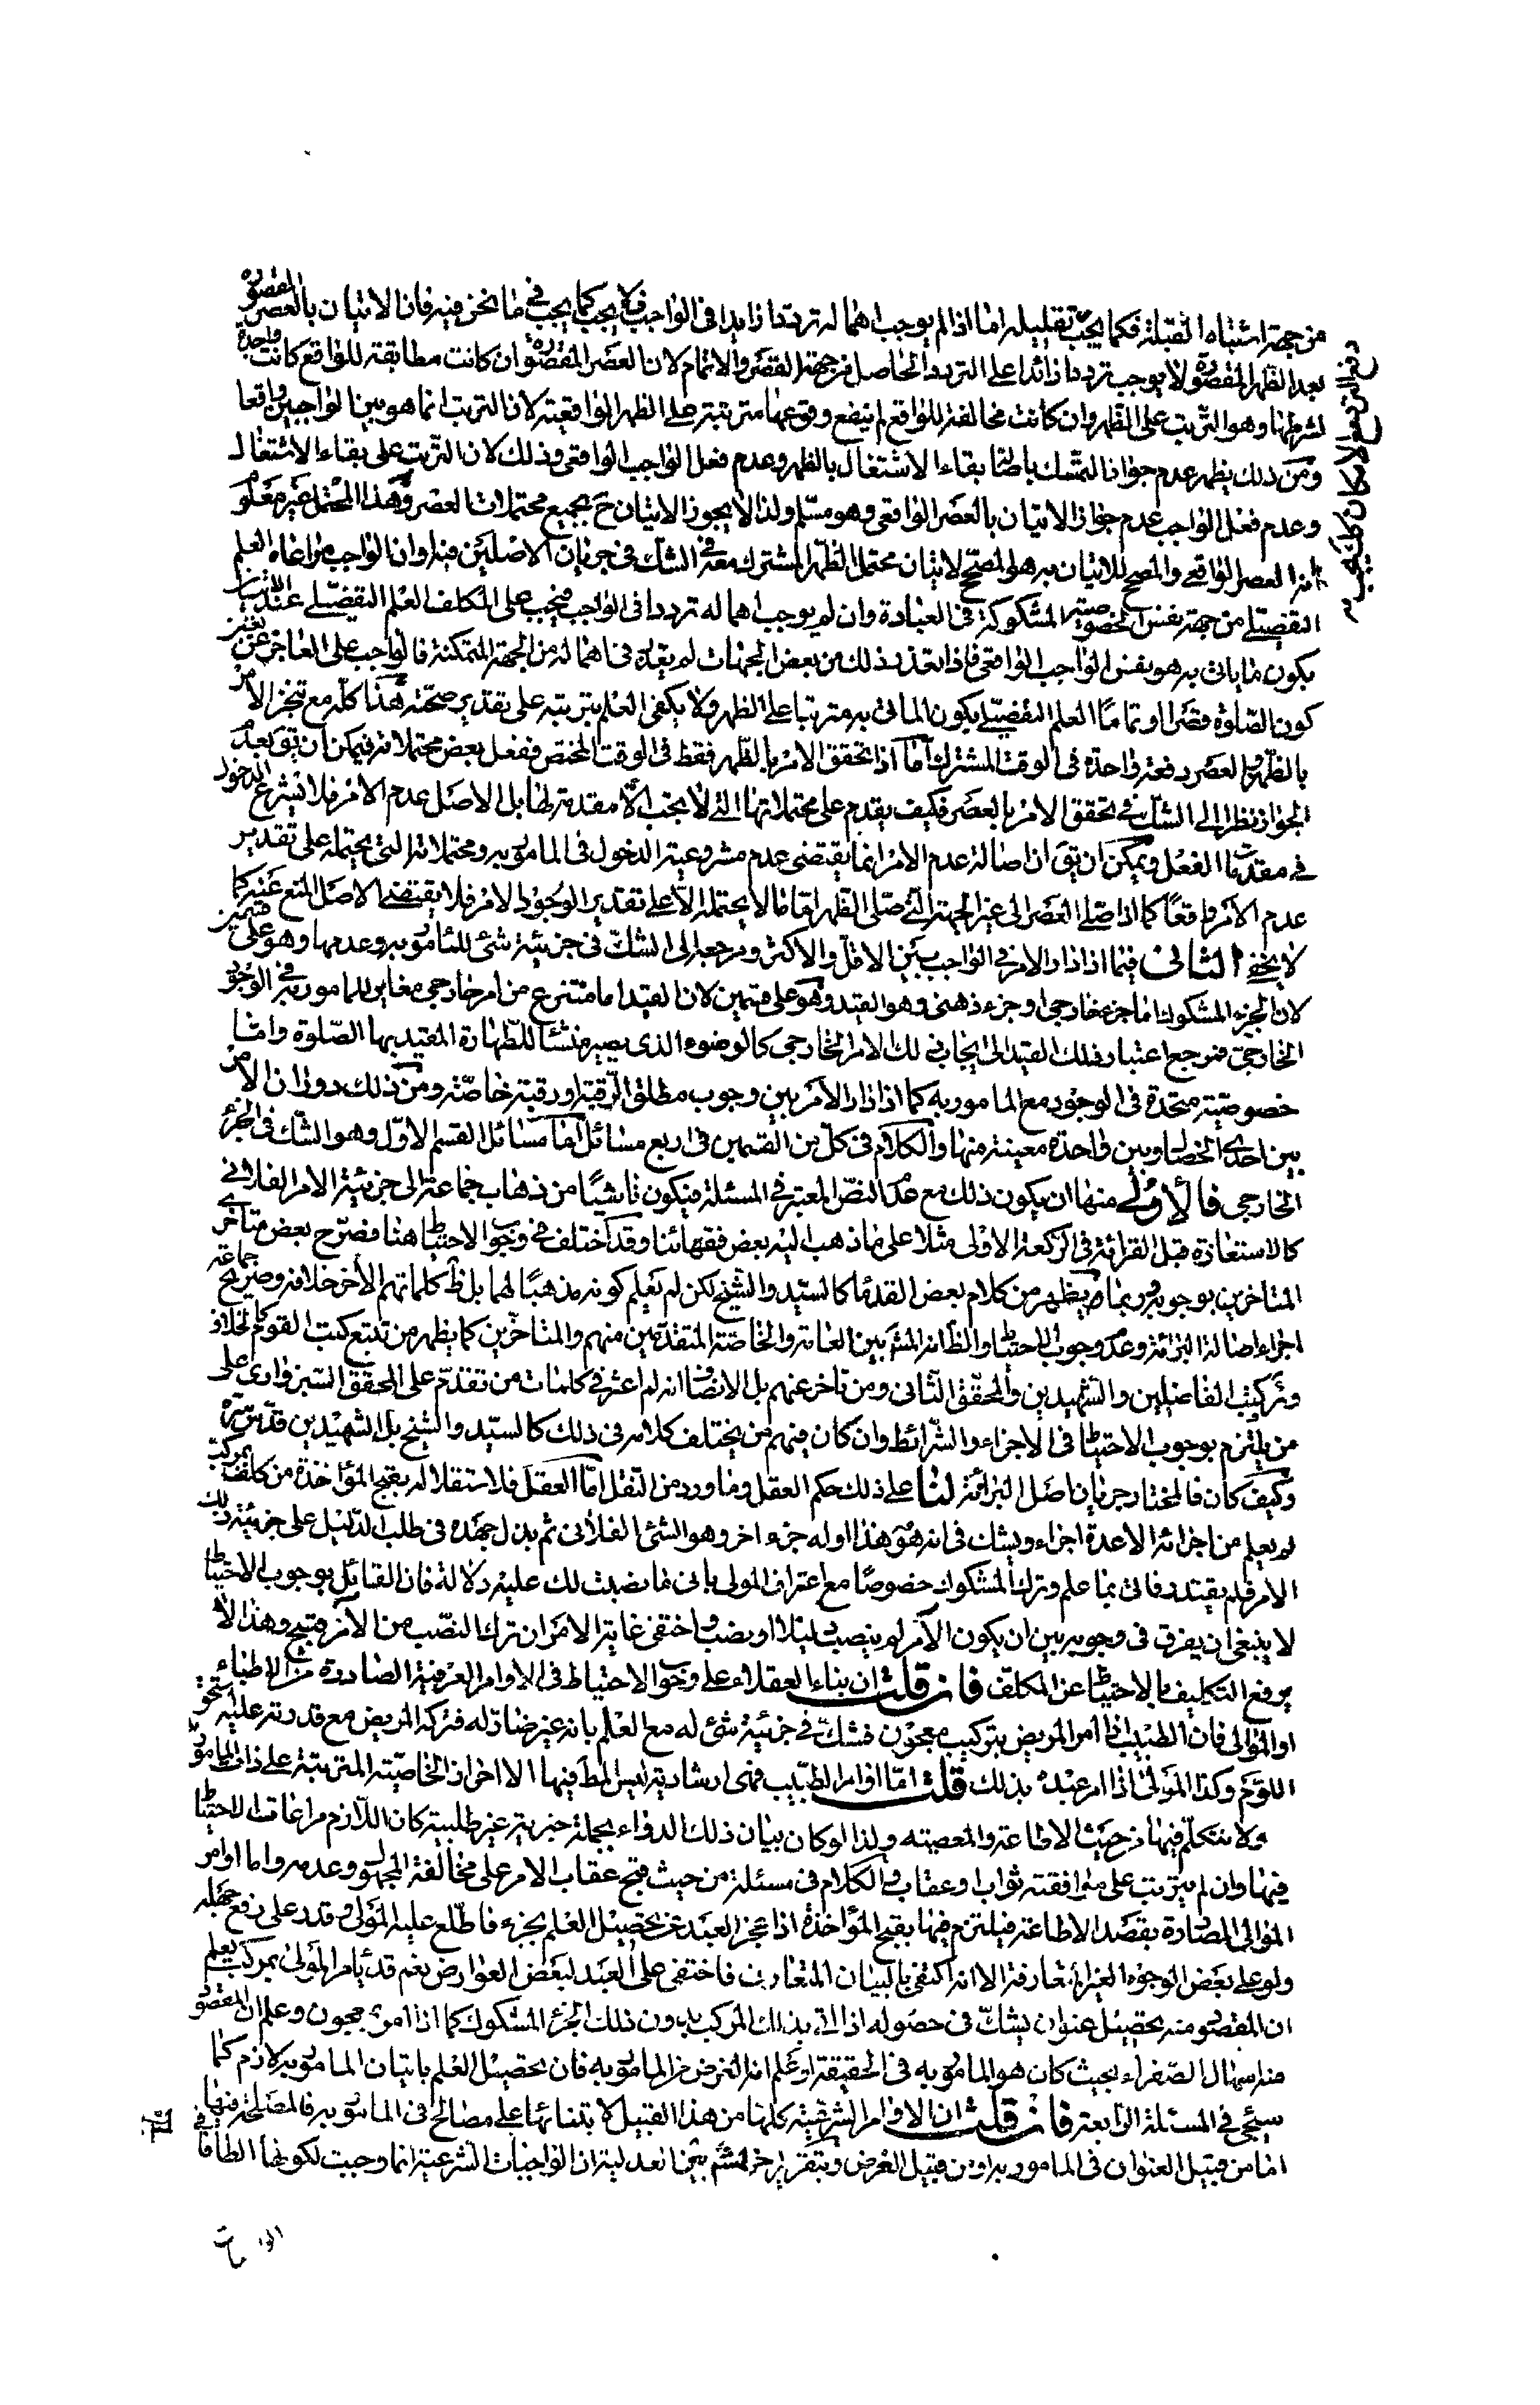 من جهة اشتباه القبلة فكما يجب تقليله اما اذا لم يوجب اهماله ترددا زايدا في الواجب فلا يجب كما يجب في ما نحن فيه فان الاتيان بالعصر المقصورة
بعد الظهر المقصورة لا يوجب ترددا زائدا على التردد الحاصل من جهة القصر والاتمام لان العصر المقصورة ان كانت مطابقة للواقع كانت واجدة
لشرطها وهو الترتب على الظهر وان كانت مخالفة للواقع لم ينفع وقوعها مترتبة على الظهر الواقعية لان الترتب انما هو بين الواجبين واقعا
ومن ذلك يظهر عدم جواز التمسك باصالة بقاء الاشتغال بالظهر وعدم فعل الواجب الواقعي وذلك لان الترتب على بقاء الاشتغال
وعدم فعل الواجب عدم جواز الاتيان بالعصر الواقعي وهو مسلم ولذا لا يجوز الاتيان ح بجميع محتملات العصر وهذا المحتمل غير معلوم
انه العصر الواقعي والمصحح للاتيان به هو المصحح لاتيان محتمل الظهر المشترك معه في الشك في جريان الاصلين فيه وان الواجب مراعاة العلم
التفصيلي من جهة نفس الخصوصية المشكوكة في العبادة وان لم يوجب اهماله ترددا في الواجب فيجب على المكلف العلم التفصيلي عند الاتيان
يكون ما ياتى به هو نفس الواجب الواقعي فاذا تعذر ذلك من بعض الجهات لم يعذر في اهماله من الجهة المتمكنة فالواجب على العاجز عن تعيين
كون الصلوة قصرا او تماما العلم التفصيلي بكون الماتى به مترتبا على الظهر ولا يكفى العلم بترتبه على تقدير صحته هذا كله مع تنجز الامر
بالظهر والعصر دفعة واحدة في الوقت المشترك اما اذا تحقق الامر بالظهر فقط في الوقت المختص ففعل بعض محتملاته فيمكن ان يق بعدم
الجواز نظرا الى الشك في تحقق الامر بالعصر فكيف يقدم على محتملاتها التي لا يجب الا مقدمة لها بل الاصل عدم الامر فلا يشرع الدخول
في مقدمات الفعل ويمكن ان يق ان اصالة عدم الامر انما يقتضى عدم مشروعية الدخول في المامور به ومحتملاته التي يحتمله على تقدير
عدم الامر واقعا كما اذا صلى العصر الى غير الجهة التي صلى الظهر اما ما لا يحتمله الا على تقدير الوجود الامر فلا يقتضى الاصل المنع عنه كما
لا يخفى الثاني فيما اذا دار الامر في الواجب بين الاقل والاكثر ومرجعه الى الشك في جزئية شئ للمامور به وعدمها وهو على قسمين
لان الجزء المشكوك اما جزء خارجي او جزء ذهنى وهو القيد وهو على قسمين لان القيد اما منتزع من امر خارجي مغاير للمامور به في الوجود
الخارجي فمرجع اعتبار ذلك القيد الى ايجاب ذلك الامر الخارجي كالوضوء الذي يصير منشئا للطهارة المقيد بها الصلوة واما
خصوصية متحدة في الوجود مع المامور به كما اذا دار الامر بين وجوب مطلق الرقبة او رقبة خاصة ومن ذلك دوران الامر
بين احدى الخصال وبين واحدة معينة منها والكلام في كل من القسمين في اربع مسائل اما مسائل القسم الاول وهو الشك في الجزء
الخارجي فالاولى منها ان يكون ذلك مع عدم النص المعتبر في المسئلة فيكون ناشيا من ذهاب جماعة الى جزئية الامر الفلاني
كالاستعاذة قبل القرائة في الركعة الاولى مثلا على ما ذهب اليه بعض فقهائنا وقد اختلف في وجوب الاحتياط هنا فصرح بعض متاخرى
المتاخرين بوجوبه وربما يظهر من كلام بعض القدما كالسيد والشيخ لكن لم يعلم كونه مذهبا لهما بل ظ كلماتهم الاخر خلافه وصريح جماعة
اجراء اصالة البرائة وعدم وجوب الاحتياط والظ انه المش بين العامة والخاصة المتقدمين منهم والمتاخرين كما يظهر من تتبع كتب القوم كالخلاف
وئر وكتب الفاضلين والشهيدين والمحقق الثاني ومن تاخر عنهم بل الانصاف انه لم اعثر في كلمات من تقدم على المحقق السبزوارى على
من يلتزم بوجوب الاحتياط في الاجزاء والشرائط وان كان فيهم من يختلف كلامه في ذلك كالسيد والشيخ بل الشهيدين قدس سره
وكيف كان فالمختار جريان اصل البرائة لنا على ذلك حكم العقل وما ورد من النقل اما العقل فلاستقلاله بقبح المؤاخذة من كلف بمركب
لم يعلم من اجزائه الا عدة اجزاء ويشك في انه هو هذا او له جزء اخر وهو الشئ الفلاني ثم بذل جهده في طلب الدليل على جزئية ذلك
الامر فلم يقتدر فاتى بما علم وترك المشكوك خصوصا مع اعتراف المولى بانى ما نصبت لك عليه دلالة فان القائل بوجوب الاحتياط
لا ينبغى ان يفرق في وجوبه بين ان يكون الآمر لم ينصب دليلا او نصب واختفى غاية الامر ان ترك النصب من الآمر قبيح وهذا لا
يرفع التكليف بالاحتياط عن المكلف فان قلت ان بناء العقلاء على وجوب الاحتياط في الاوامر العرفية الصادرة من الاطباء
او الموالى فان الطبيب اذا امر المريض بتركيب معجون فشك في جزئية شئ له مع العلم بانه غير ضار له فتركه المريض مع قدرته عليه استحق
اللوم وكذا المولى اذا امر عبده بذلك قلت اما اوامر الطبيب فهى ارشادية ليس المط فيها الا احراز الخاصية المترتبة على ذات المامور به
ولا نتكلم فيها من حيث الاطاعة والمعصيته ولذا لو كان بيان ذلك الدواء بجملة خبرية غير طلبية كان اللازم مراعات الاحتياط
فيها وان لم يترتب على موافقته ثواب او عقاب والكلام في مسئلة من حيث قبح عقاب الامر على مخالفة المجهول وعدمه واما اوامر
الموالى الصادرة بقصد الاطاعة فيلتزم فيها بقبح المؤاخذة اذا عجز العبد عن تحصيل العلم بجزء فاطلع عليه المولى وقدر على رفع جهله
ولو على بعض الوجوه الغير المتعارفة الا انه اكتفى بالبيان المتعارف فاختفى على العبد لبعض العوارض نعم قد يامر المولى بمركب يعلم
ان المقصود منه تحصيل عنوان يشك في حصوله اذا اتى بذلك المركب بدون ذلك الجزء المشكوك كما اذا امر بمعجون وعلم ان المقصود
منه اسهال الصفراء بحيث كان هو المامور به في الحقيقة او علم انه الغرض من المامور به فان تحصيل العلم باتيان المامور به لازم كما
سيجئ في المسئلة الرابعة فان قلت ان الاوامر الشرعية كلها من هذا القبيل لابتنائها على مصالح في المامور به فالمصلحة فيها
اما من قبيل العنوان في المامور به او من قبيل الغرض وبتقرير اخر المش بين العدلية ان الواجبات الشرعية انما وجبت لكونها الطافا في